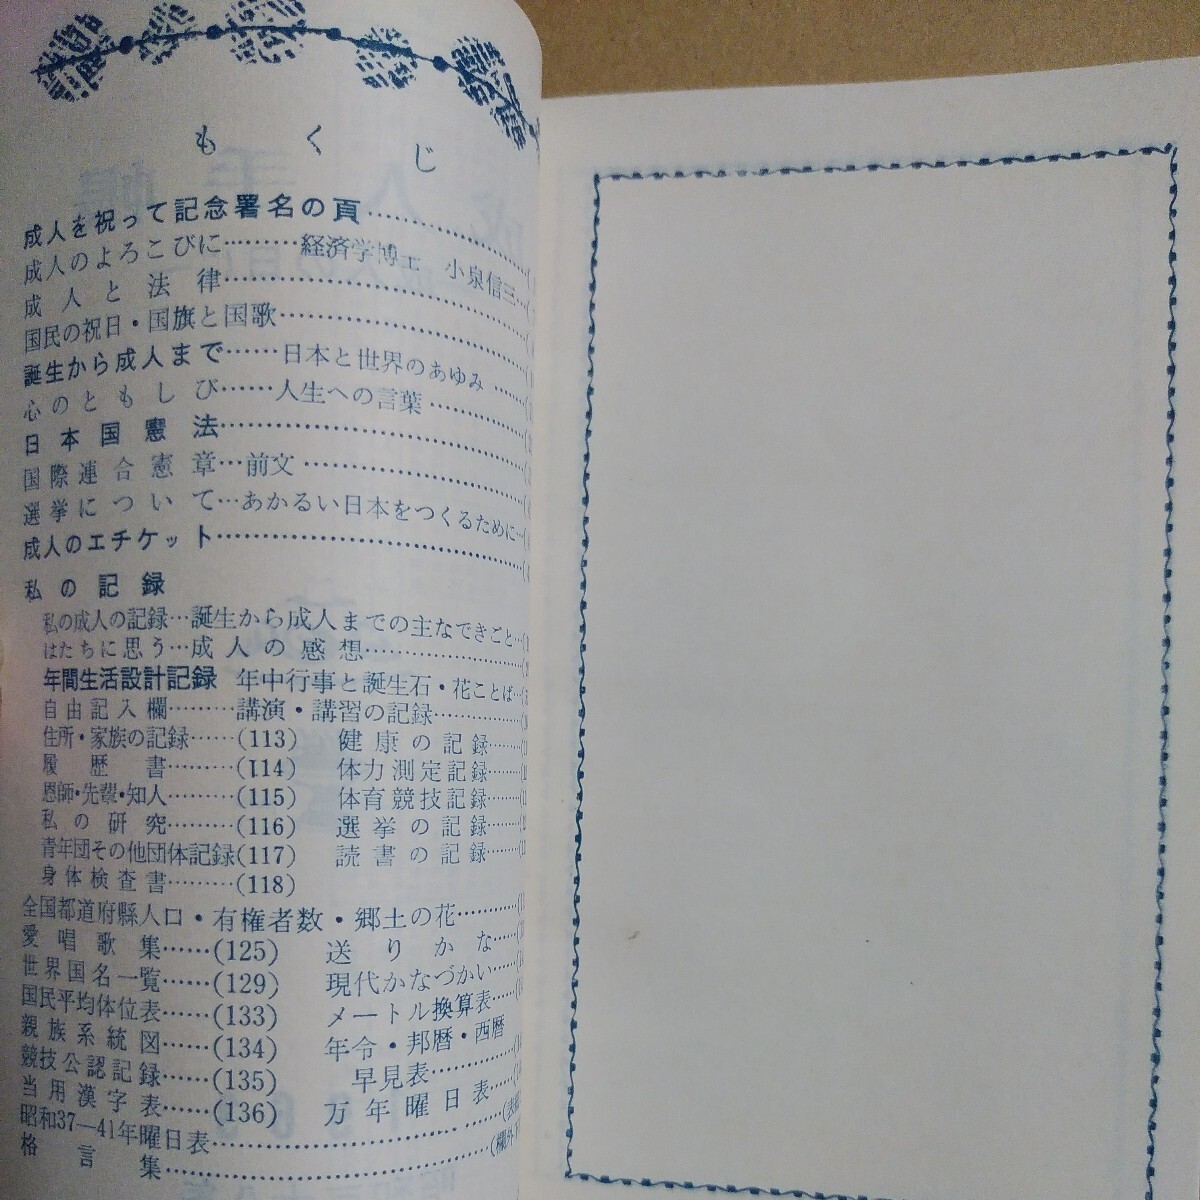 もくじ
成人を祝って記念署名の頁……………(
成人のよろこびに………経済学博士 小泉信三…(
成人と法律……………………………(
国民の祝日・国旗と国歌……………………(
誕生から成人まで……日本と世界のあゆみ……(
心のともしび……人生への言葉…………(
日本国憲法……………………………(
国際連合憲章…前文……………………(
選挙について…あかるい日本をつくるために…(
成人のエチケット……………………………(
私の記録
私の成人の記録…誕生から成人までの主なできごと…(
はたちに思う…成人の感想………………(
年間生活設計記録 年中行事と誕生石・花ことば…(
自由記入欄………講演・講習の記録…………(
住所・家族の記録……(113) 健康の記録………(
履歴書………(114) 体力測定記録………(
恩師・先輩・知人………(115) 体育競技記録………(
私の研究………(116) 選挙の記録………(
青年団その他団体記録(117) 読書の記録………(
身体検査書………(118)
全国都道府縣人口・有権者数・郷土の花…………(
愛唱歌集……(125) 送りかな……(
世界国名一覧……(129) 現代かなづかい……(
国民平均体位表……(133) メートル換算表……(
親族系統図……(134) 年令・邦暦・西暦
競技公認記録……(135) 早見表…………(
当用漢字表……(136) 万年曜日表……(
昭和37—41年曜日表……………………(表
格言集……………………………(欄外下